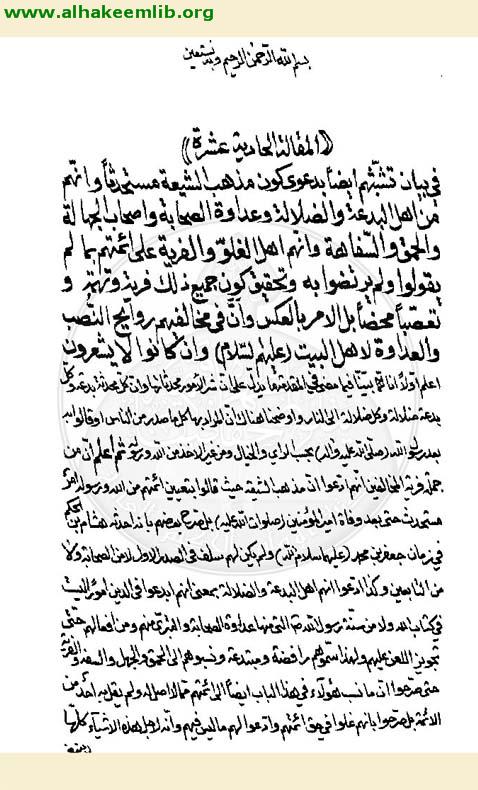 www.alhakeemlib.org
بسم الله الرحمن الرحيم وبه نستعين
((المقالة الحادية عشرة))
في بيان تشبثهم ايضاً بدعوى كون مذهب الشيعة مستحدثاً وانهم
من اهل البدعة والضلالة وعداوة الصحابة واصحاب الجهالة
والحمق والسفاهة وانهم اهل الغلوّ والفرية على ائمتهم بما لم
يقولوا ولم يرتضوا به وتحقيق كون جميع ذلك فرية وتهمة و
تعصباً محضاً بل الامر بالعكس وانّ في مخالفيهم روايح النصب
والعداوة لاهل البيت (عليهم السلام) وان كانوا لا يشعرون
اعلم اولاً انا قد بيّنا فيما مضى في المقدمة ما يدلّ على ان شر الامور محدثاتها وان كل محدثة بدعة وكل
بدعة ضلالة وكل ضلالة الى النار واوضحنا هناك ان المراد بها كل ما صدر من الناس او قالوا به
بعد رسول الله (صلى الله عليه وآله) بحسب الراي والخيال ومن غير الاخذ من الله ورسوله ثم اعلم انّ من
جملة فرية المخالفين انهم ادعوا انّ مذهب الشيعة حيث قالوا بتعيين ائمتهم من الله ورسوله امر
مستحدث حتى بعد وفاة امير المؤمنين (صلوات الله عليه) بل صرح بعضهم بانه احدثه هشام بن الحكم
في زمان جعفر بن محمد (عليهما سلام الله) ولم يكن لهم سلف في الصدر الاول لا من الصحابة ولا
من التابعين وكذا ادعوا انهم اهل البدعة والضلالة بمعنى انهم ابدعوا في الدين امور ليست
في كتاب الله ولا من سنة رسول الله التي منها عداوة الصحابة والتبرّي منهم ومن افعالهم حتى
تجويز اللعن عليهم ولهذا سموهم رافضة ومبتدعة ونسبوهم الى الحمق والجهل والسفه والفرية
حتى صرحوا انّ ما نسب هؤلاء في هذا الباب ايضاً الى ائمتهم مما لا اصل له ولم يقل به احد من
الائمة بل صرحوا بانهم غلوا في حق ائمتهم وادعوا لهم ما ليس فيهم وانه لاجل هذه الاشياء كلّها